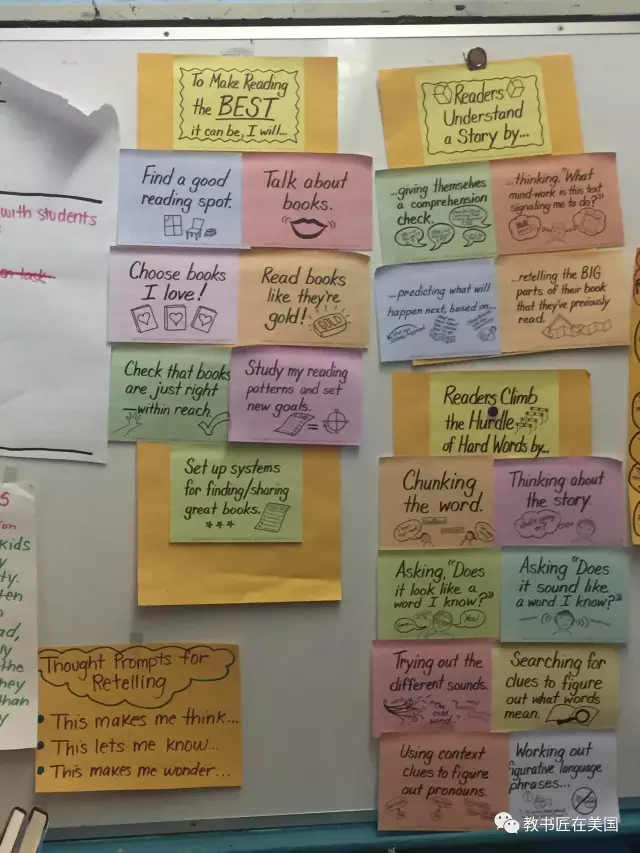 To Make Reading
the BEST
it can be, I will...
Find a good
reading spot.
Talk about
books.
Choose books
I love!
Read books
like they're
gold!
GOLD
Check that books
are just right
within reach.
Study my reading
patterns and set
new goals.
Set up systems
for finding/sharing
great books.
Readers
Understand
a Story by...
...giving themselves
a comprehension
check.
...thinking, "What
mind-work is this text
signaling me to do?"
...predicting what will
happen next, based on...
...retelling the BIG
parts of their book
that they've previously
read.
Readers Climb
the Hurdle
of Hard Words by...
Chunking
the word.
Thinking about
the story.
Asking, "Does
it look like a
word I know?"
Yes!
Asking "Does
it sound like
a word I know?"
Trying out the
different sounds.
Searching for
clues to figure
out what words
mean.
Using context
clues to figure
out pronouns.
Working out
figurative language
phrases...
Thought Prompts for
Retelling
This makes me think...
This lets me know...
This makes me wonder...
with students
kids
the
than
教书匠在美国